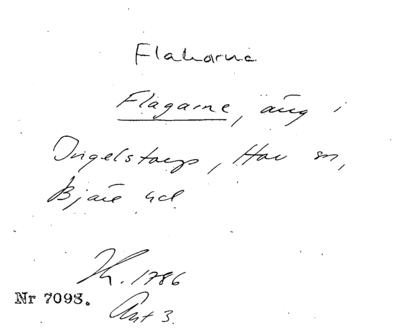 Flakarne
Flagarne, äng i
Ingelstorp, Hov sn,
Bjäre hd
Kt. 1786
Nr 7093. Akt 3.